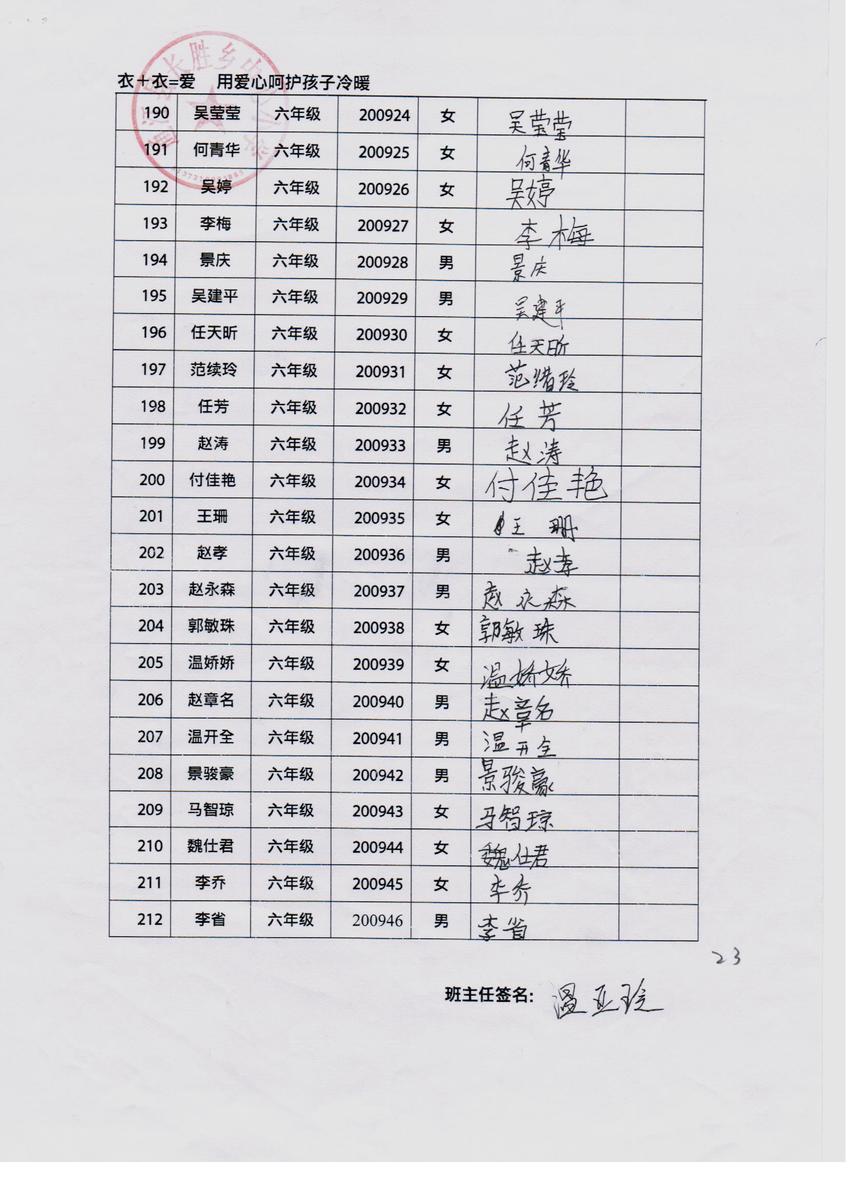 衣+衣=爱 用爱心呵护孩子冷暖
190 吴莹莹 六年级 200924 女 吴莹莹
191 何青华 六年级 200925 女 何青华
192 吴婷 六年级 200926 女 吴婷
193 李梅 六年级 200927 女 李梅
194 景庆 六年级 200928 男 景庆
195 吴建平 六年级 200929 男 吴建平
196 任天昕 六年级 200930 女 任天昕
197 范续玲 六年级 200931 女 范绪玲
198 任芳 六年级 200932 女 任芳
199 赵涛 六年级 200933 男 赵涛
200 付佳艳 六年级 200934 女 付佳艳
201 王珊 六年级 200935 女 王珊
202 赵孝 六年级 200936 男 赵孝
203 赵永森 六年级 200937 男 赵永森
204 郭敏珠 六年级 200938 女 郭敏珠
205 温娇娇 六年级 200939 女 温娇娇
206 赵章名 六年级 200940 男 赵章名
207 温开全 六年级 200941 男 温开全
208 景骏豪 六年级 200942 男 景骏豪
209 马智琼 六年级 200943 女 马智琼
210 魏仕君 六年级 200944 女 魏仕君
211 李乔 六年级 200945 女 李乔
212 李省 六年级 200946 男 李省
23
班主任签名: 温亚